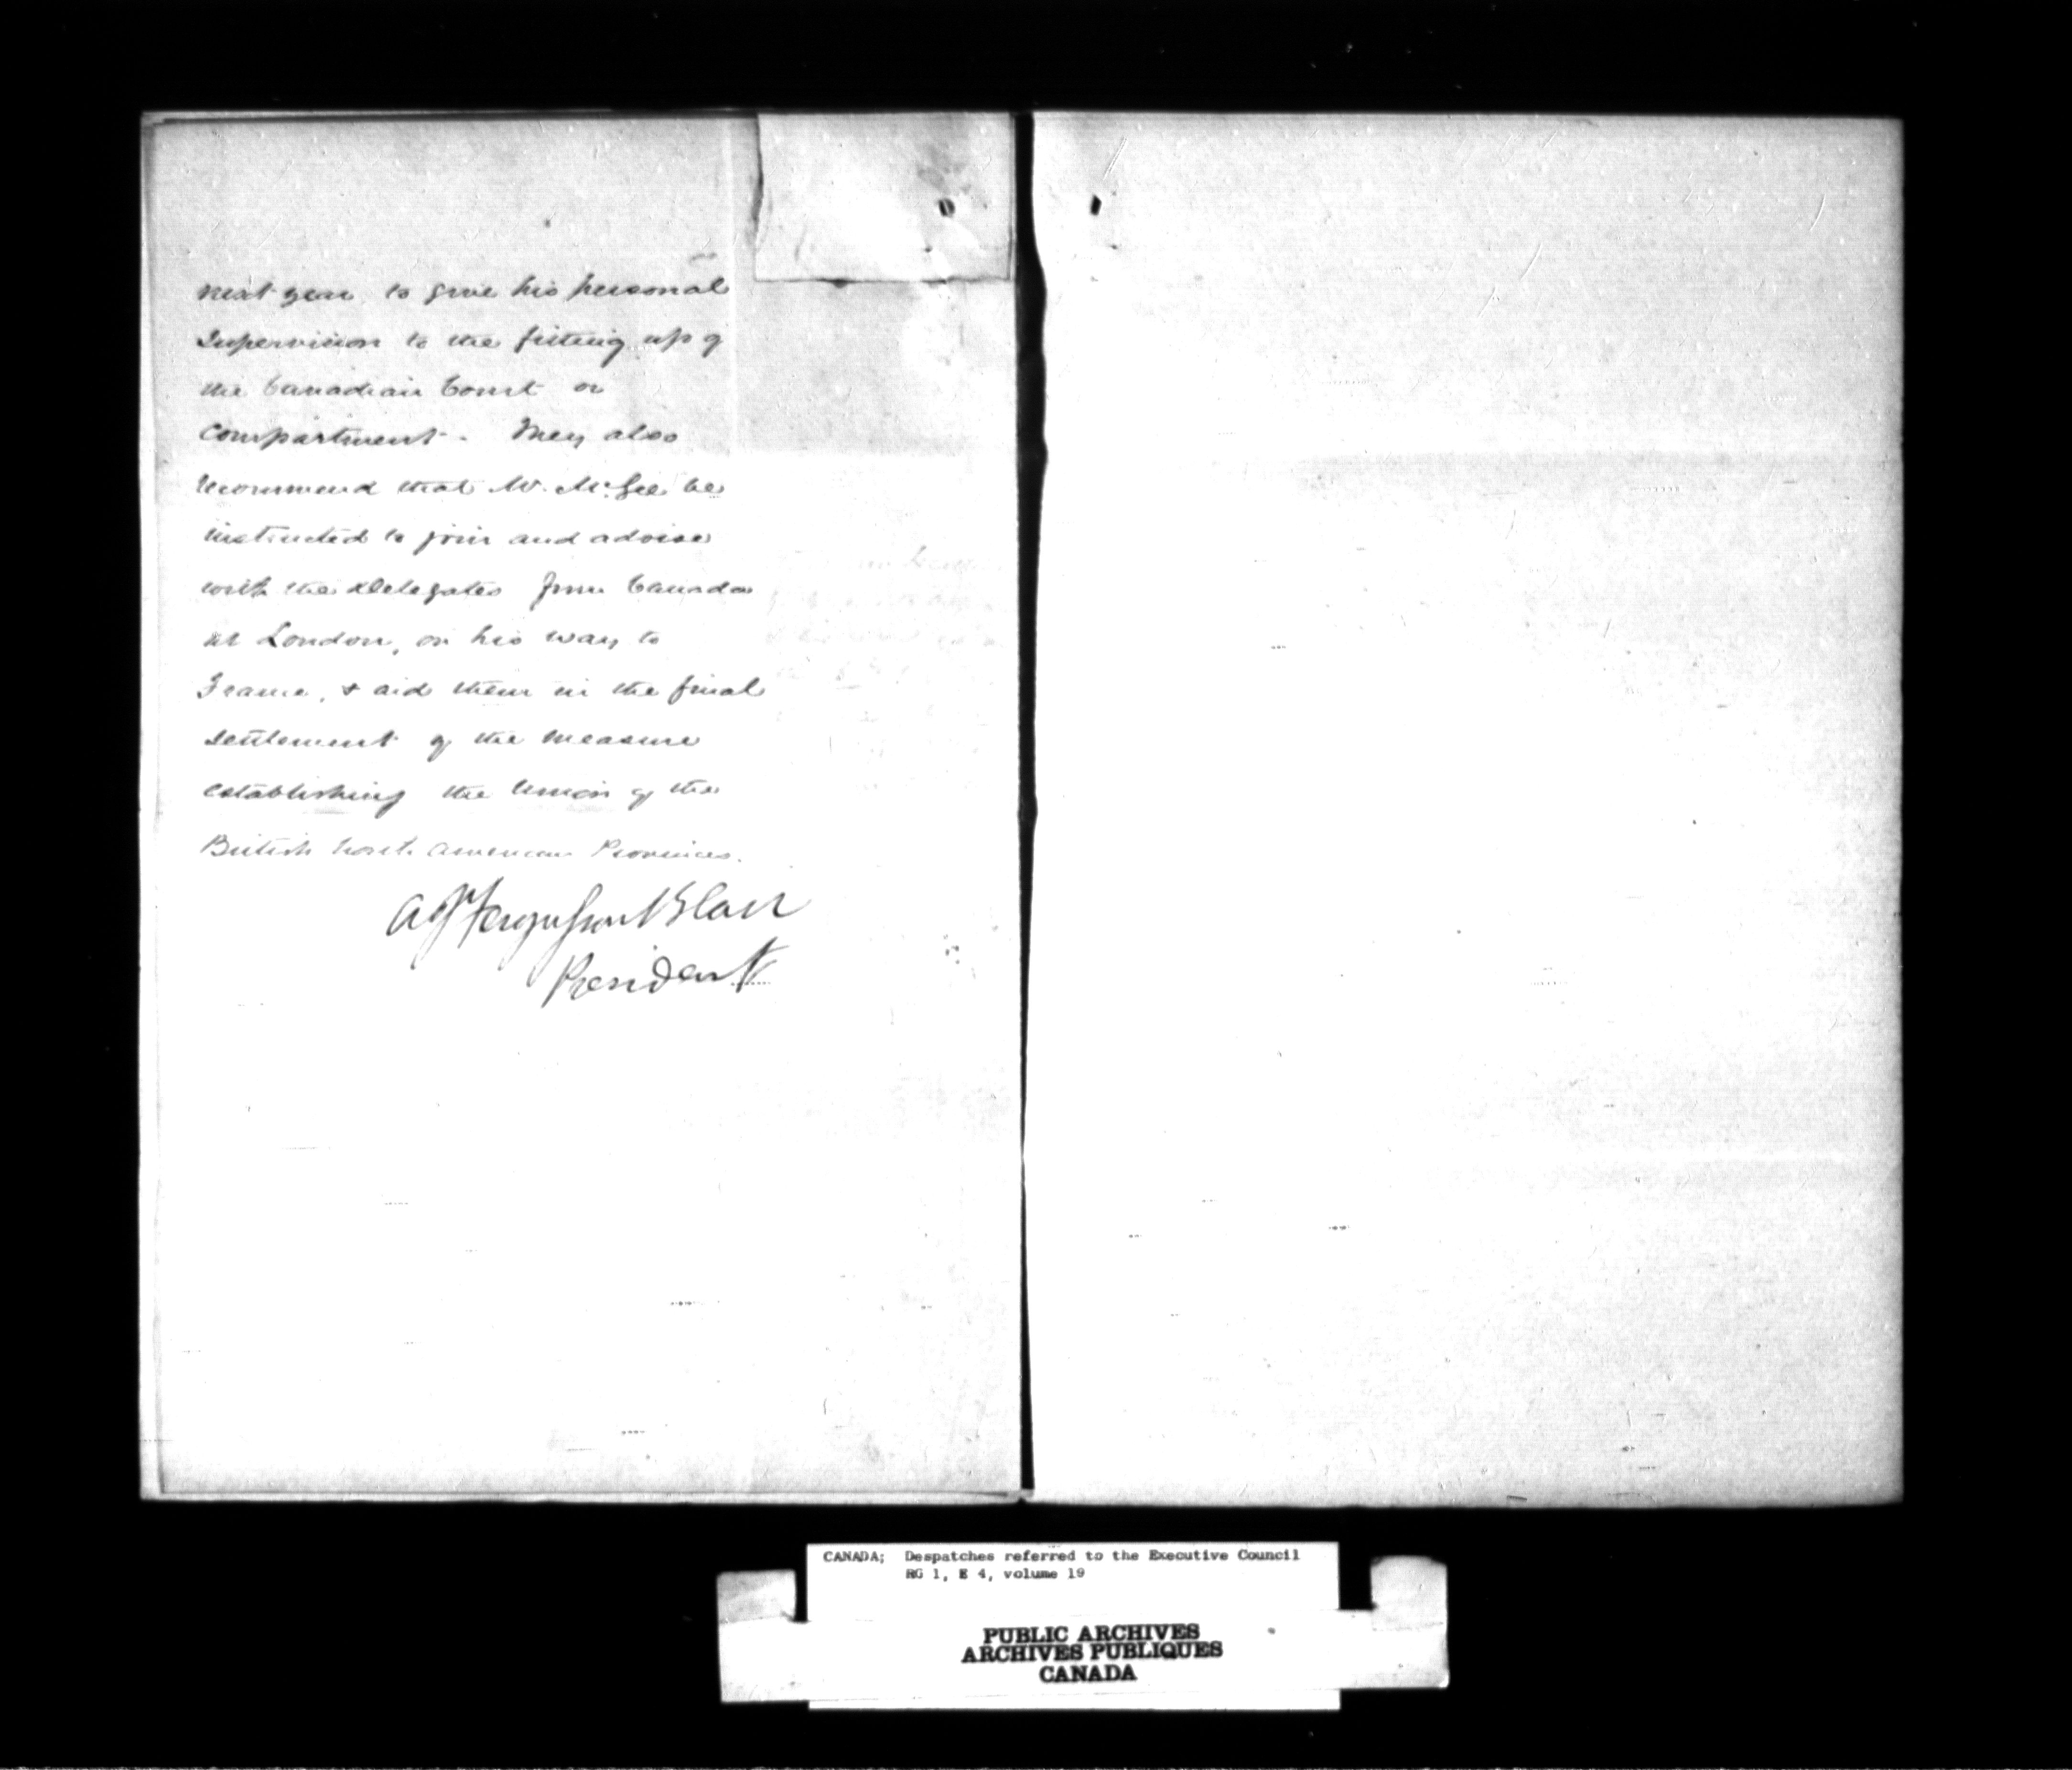 next year, to give his personal
Supervision to the fitting up of
the Canadian Court or
Compartment. They also
recommend that Mr. McGee be
instructed to join and advise
with the Delegates from Canada
at London, on his way to
France, & aid them in the final
settlement of the measure
establishing the Union of the
British North American Provinces.
A J Fergusson Blair
President
CANADA; Despatches referred to the Executive Council
RG 1, E 4, volume 19
PUBLIC ARCHIVES
ARCHIVES PUBLIQUES
CANADA